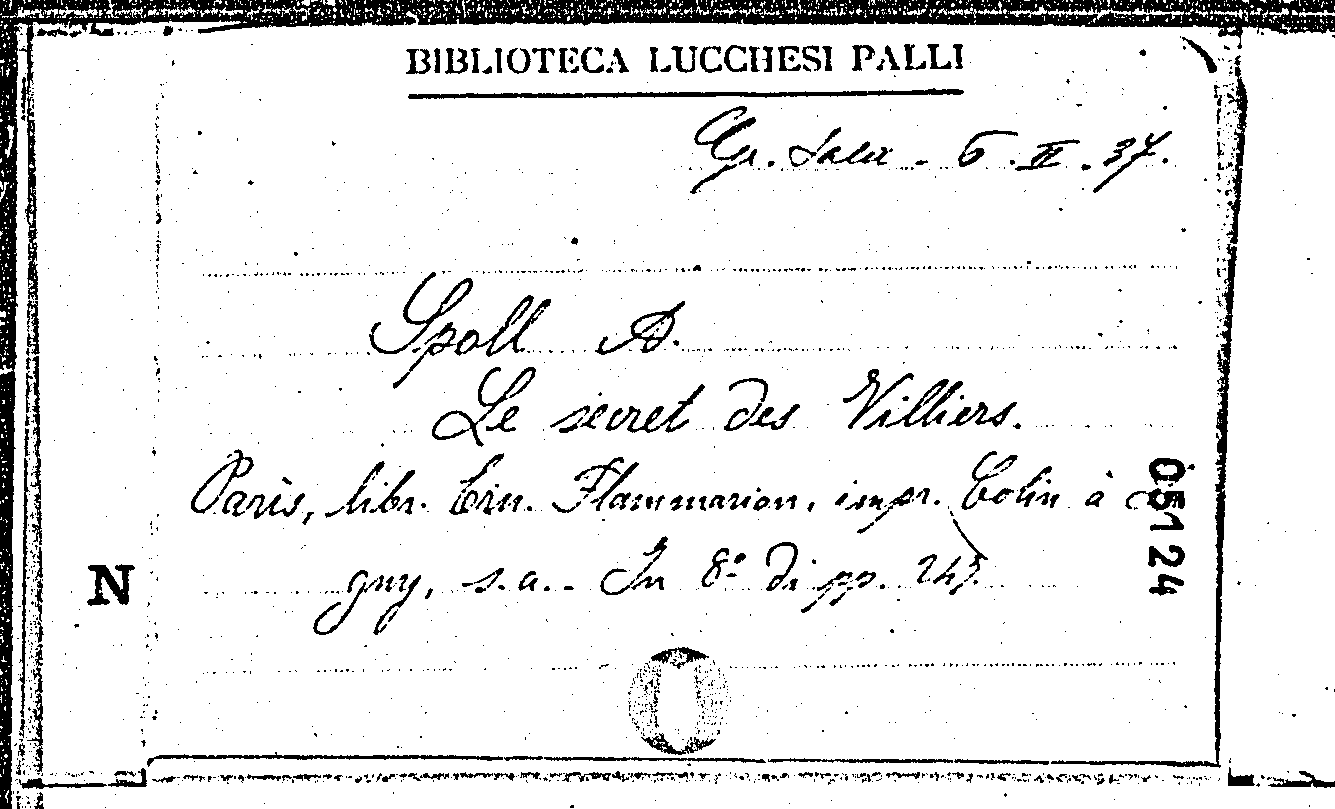 BIBLIOTECA LUCCHESI PALLI
Gr. Sala - 6. II. 37.
Spoll A.
Le secret des Villiers.
Paris, libr. Ern. Flammarion, impr. Colin à
guy, s.a.. In 8º di pp. 245
N
05124